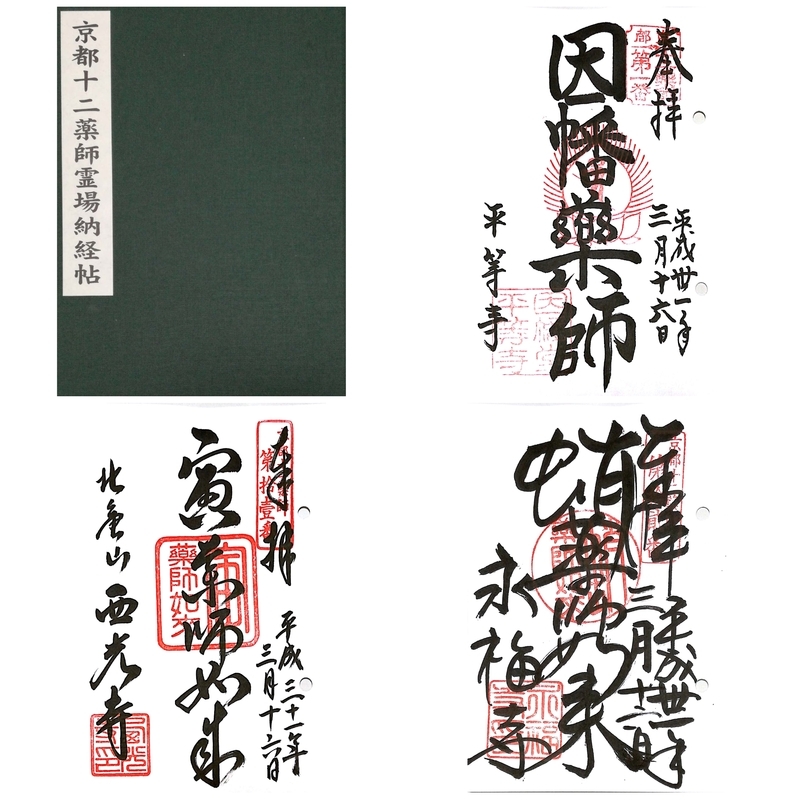 京都十二薬師霊場納経帖
奉拝
第一番
平成丗一年
三月十六日
因幡薬師
平等寺
奉拝
第拾壹番
平成三十一年
三月十六日
寅薬師如来
北金山西光寺
平成丗一年
三月十二日
蛸薬師如来
永福寺